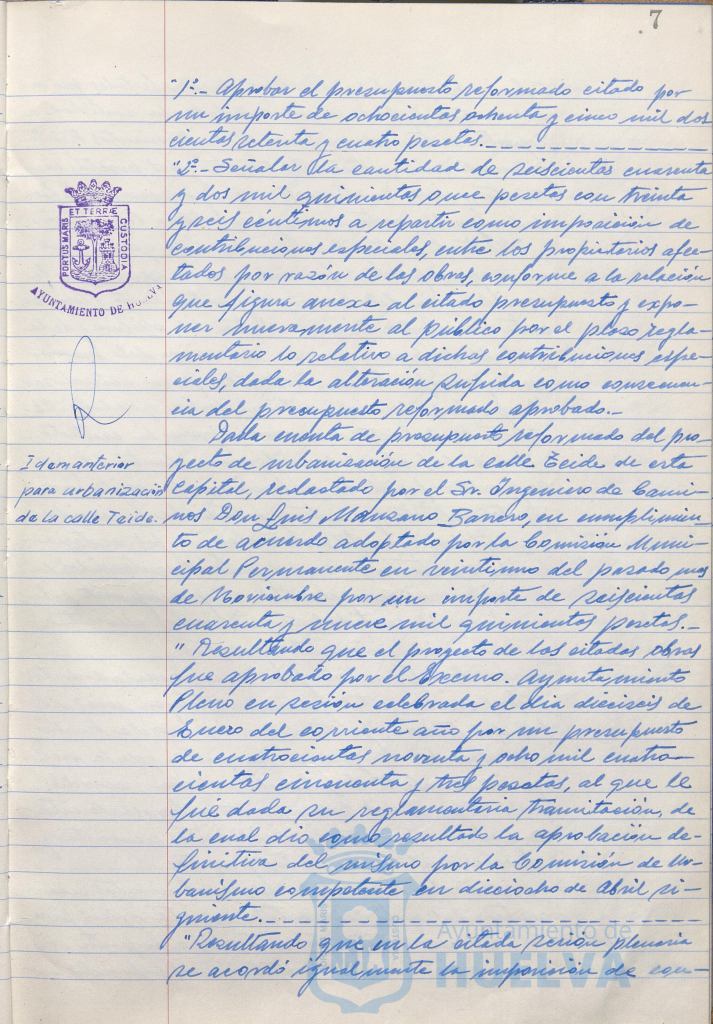 7
"1º.- Aprobar el presupuesto reformado citado por
un importe de ochocientas ochenta y cinco mil dos
cientas setenta y cuatro pesetas.
"2º.- Señalar la cantidad de seiscientas cuarenta
y dos mil quinientas once pesetas con treinta
y seis céntimos a repartir como imposición de
contribuciones especiales, entre los propietarios afec-
tados por razón de las obras, conforme a la relación
que figura anexa al citado presupuesto y expo-
ner nuevamente al público por el plazo regla-
mentario lo relativo a dichas contribuciones espe-
ciales, dada la alteración sufrida como consecuen-
cia del presupuesto reformado aprobado.-
Dada cuenta de presupuesto reformado del pro-
yecto de urbanización de la calle Teide de esta
capital, redactado por el Sr. Ingeniero de Cami-
nos Don Luis Manzano Barrero, en cumplimien-
to de acuerdo adoptado por la Comisión Muni-
cipal Permanente en veintiuno del pasado mes
de Noviembre por un importe de seiscientas
cuarenta y nueve mil quinientas pesetas.-
"Resultando que el proyecto de las citadas obras
fue aprobado por el Excmo. Ayuntamiento
Pleno en sesión celebrada el día dieciseis de
Enero del corriente año por un presupuesto
de cuatrocientas noventa y ocho mil cuatro-
cientas cincuenta y tres pesetas, al que le
fué dada su reglamentaria tramitación, de
la cual dio como resultado la aprobación de-
finitiva del mismo por la Comisión de Ur-
banismo competente en dieciocho de Abril si-
guiente.
"Resultando que en la citada sesión plenaria
se acordó igualmente la imposición de con-
PORTUS MARIS
ET TERRÆ
CUSTODIA
AYUNTAMIENTO DE HUELVA
Idem anterior
para urbanización
de la calle Teide.
Ayuntamiento de
HUELVA